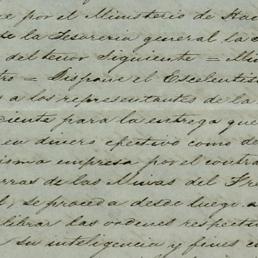 ce por el Ministerio de Hac
la Tesoreria general la
del tenor siguiente = Mi
= Dispone el Escelentis
a los representantes de la
para la entrega que
en dinero efectivo como de
misma empresa por el contra
de las Minas del Fre
se proceda desde luego a
librar las ordenes respect
su inteligencia y fines c